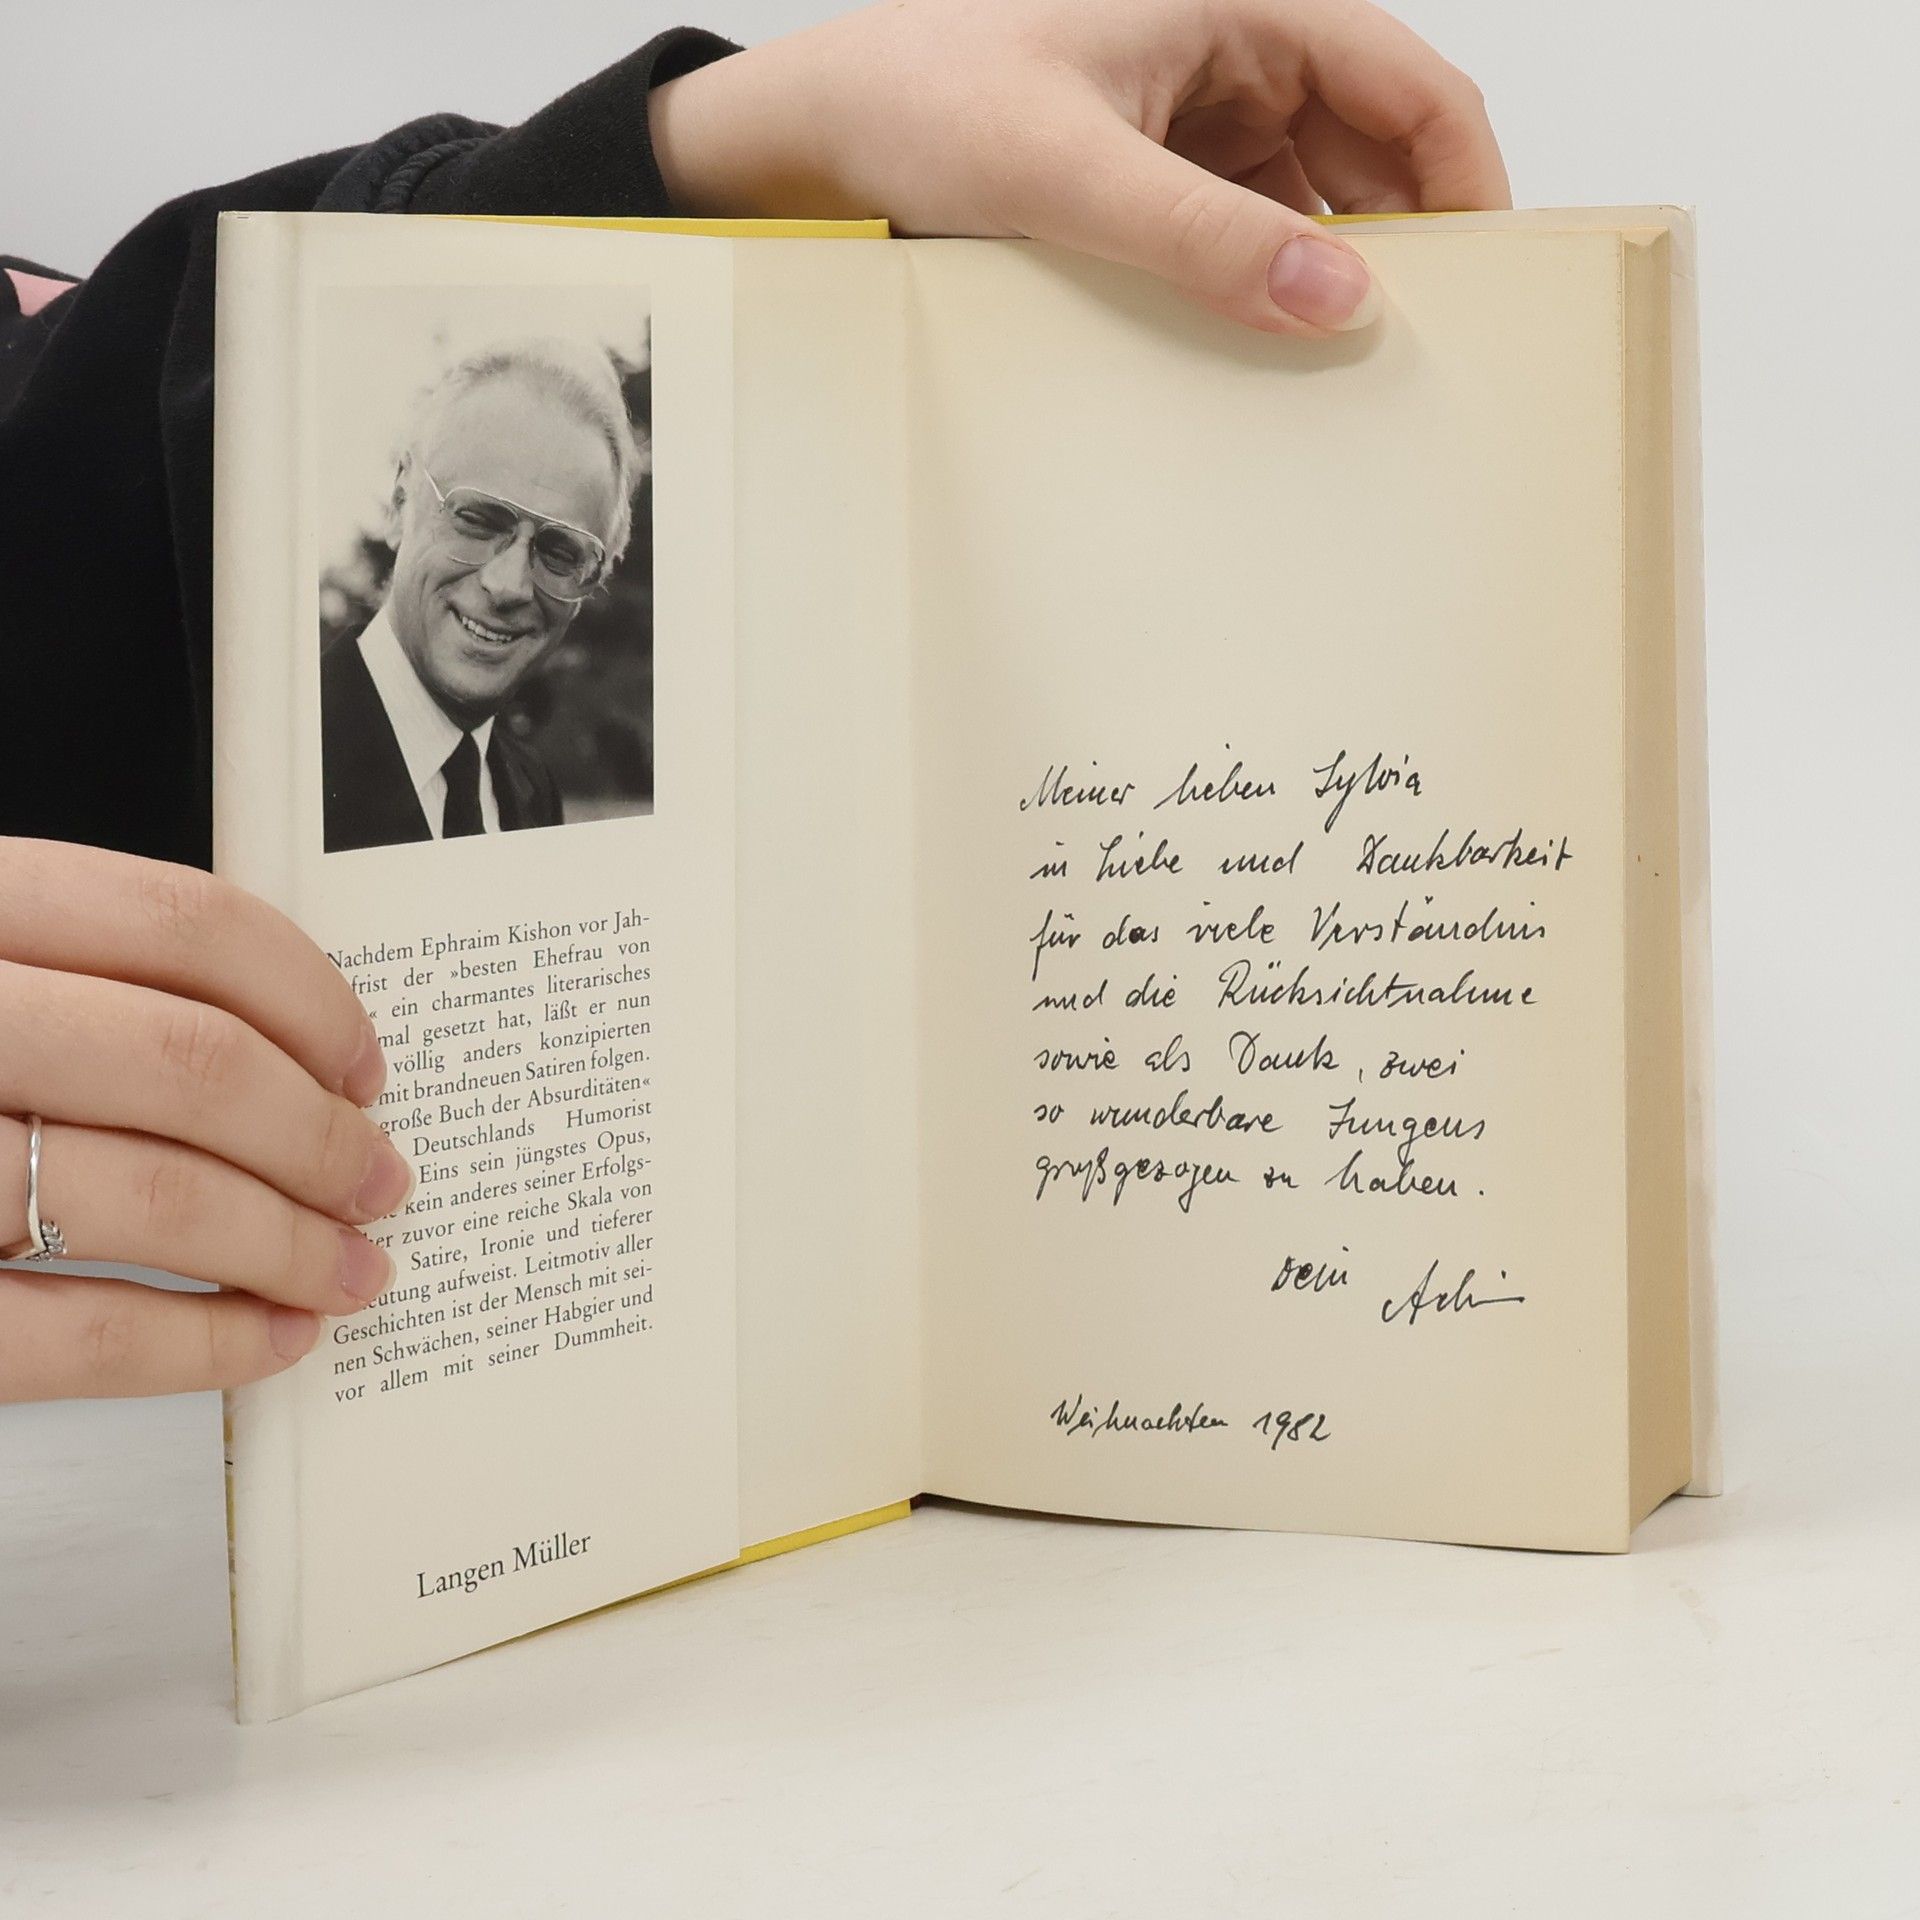 Nachdem Ephraim Kishon vor Jah-
frist der »besten Ehefrau von
« ein charmantes literarisches
mal gesetzt hat, läßt er nun
völlig anders konzipierten
mit brandneuen Satiren folgen.
große Buch der Absurditäten«
Deutschlands Humorist
Eins sein jüngstes Opus,
kein anderes seiner Erfolgs-
her zuvor eine reiche Skala von
Satire, Ironie und tieferer
eutung aufweist. Leitmotiv aller
Geschichten ist der Mensch mit sei-
nen Schwächen, seiner Habgier und
vor allem mit seiner Dummheit.
Langen Müller
Meiner lieben Sylvia
in Liebe und Dankbarkeit
für das viele Verständnis
und die Rücksichtnahme
sowie als Dank, zwei
so wunderbare Jungens
großgezogen zu haben.
Dein
Weihnachten 1982